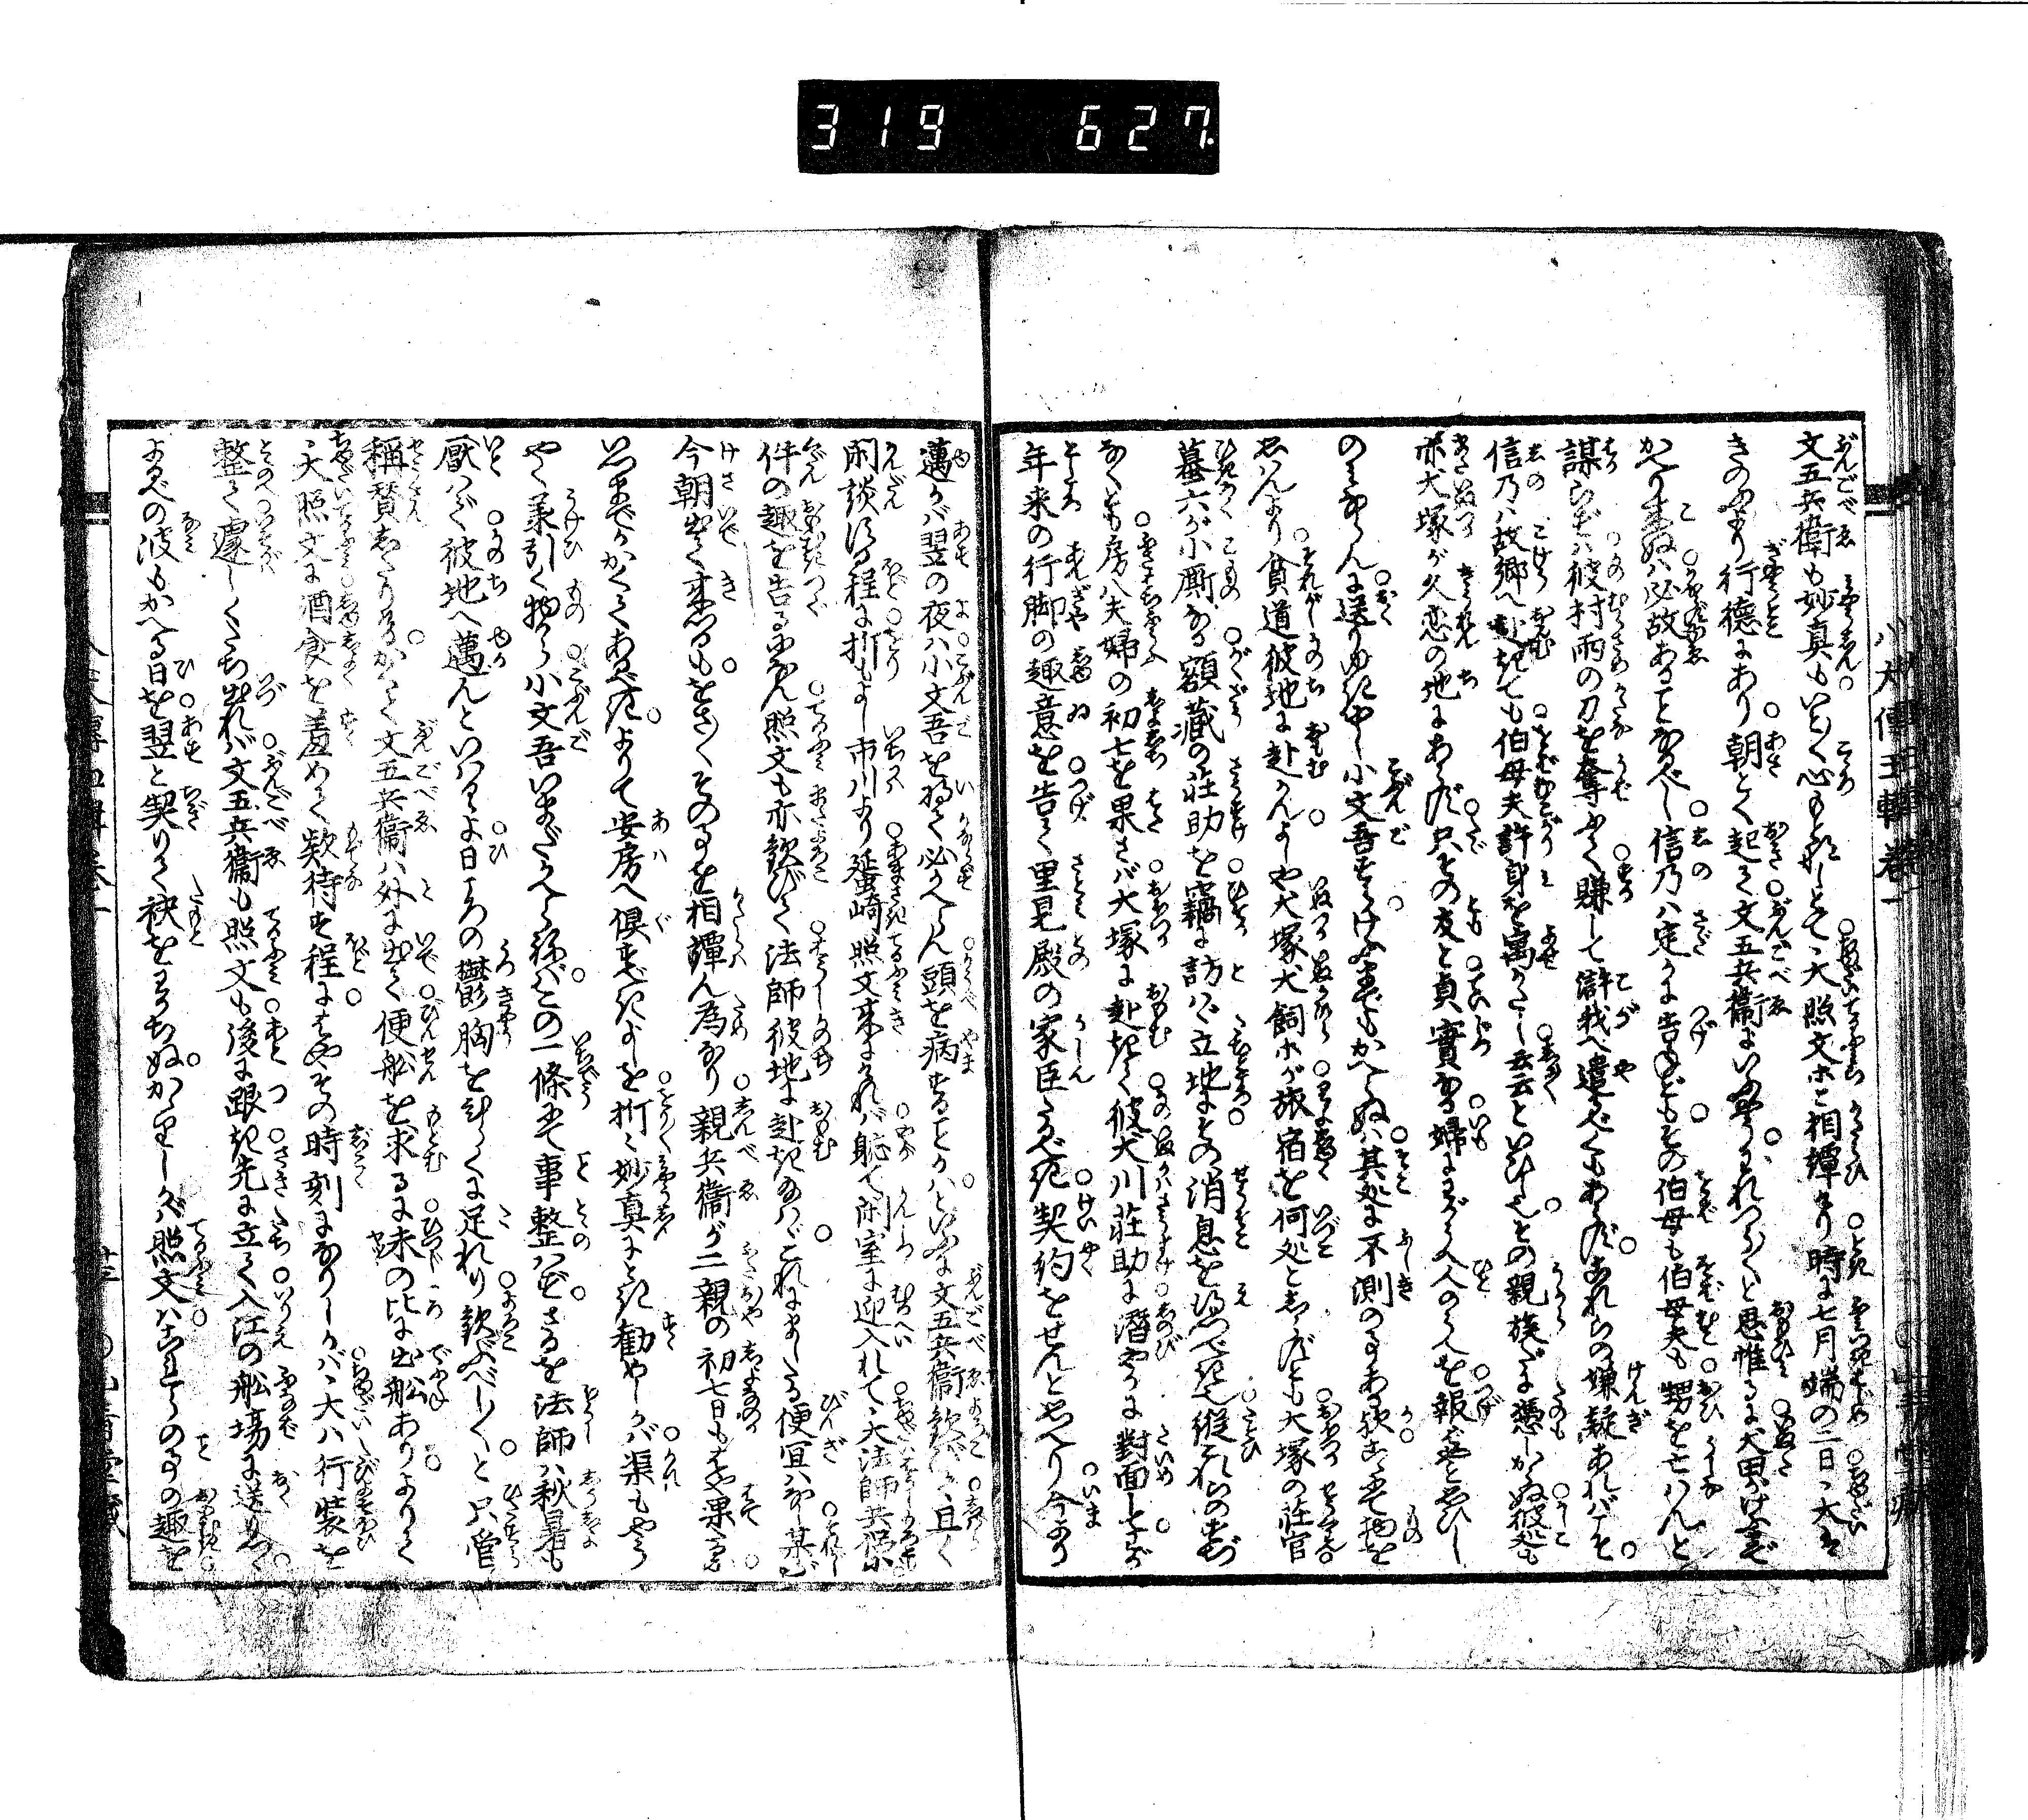 319 627
八犬傳五輯卷一
文五兵衛も妙真もいと心もとなしとて、大照文ホと相譚けり時に七月端の二日ゝ大は
きのふより行徳にあり朝とく起て文五兵衛にいふやうわれつら〳〵と思惟るに犬田がけふまで
かへり来ぬハ必故あることなるべし信乃ハ定かに告ねどもその伯母も伯母夫も甥をむこ
謀らずハ彼村雨の刀を奪ふて賺して滸我へ遣べくもあらずこれらの嫌疑あれバこそ
信乃ハ故郷へ赴きても伯母夫許身を寓がたし云云といひしとぞその親族だに憑しからぬ彼処も
亦犬塚が久恋の地にあらず只その友と貞實なる婦にまだき人のうへを報ばやと思ひし
のミならんに送りゆきし小文吾さへけふまでもかへらぬハ其処に不測の事ある歟こゝにて物を
思んより貧道彼地に赴かんよしや犬塚犬飼ホが旅宿を何処としらずとも大塚の荘官
蟇六が小厮なる額蔵の荘助を竊に訪ハゞ立地にその消息を得つべきなり縦これらの事
なくとも房八夫婦の初七を果さバ大塚に赴きて彼犬川荘助に潜やかに對面しとが
年来の行脚の趣意を告て里見殿の家臣たるべき契約をせんと思へり今より
邁かバ翌の夜ハ小文吾を将て必かへらん頭を病することかハといふに文五兵衛歓びて且く
閑談する程に折もよし市川より蜑崎照文来にけれバ軈て閑室に迎入れて、大法師共侶に
件の趣を告るになん照文も亦歓びて法師彼地に赴き給ハゞこれにましたる便宜ハなし某が
今朝出て来つるもをさ〳〵その事を相譚ん為なり親兵衛が二親の初七日もはや果たるに
いつまでかかくてあるべきよりて安房へ倶すべきよしを折々妙真にとき勧めしが渠もやう
やく承引く物から小文吾いまだかへらねバこの一條にて事整ハずさるを法師ハ秋暑も
厭ハで彼地へ邁んといハるゝよ日ころの鬱胸をひらくに足れり歓ぶべし〳〵と只管
稱賛したりけるかくて文五兵衛ハ外に出て便舩を求るに未の比に出舩ありよりて
ゝ大照文に酒食を羞めて欵待す程にはやその時刻になりしかバゝ大ハ行装を
整て遽しくたち出れバ文五兵衛も照文も後に跟き先に立て入江の舩場に送りゆく
よるべの波もかへる日を翌と契りて袂をわかちぬかゝりしかバ照文ハこれらの事の趣を